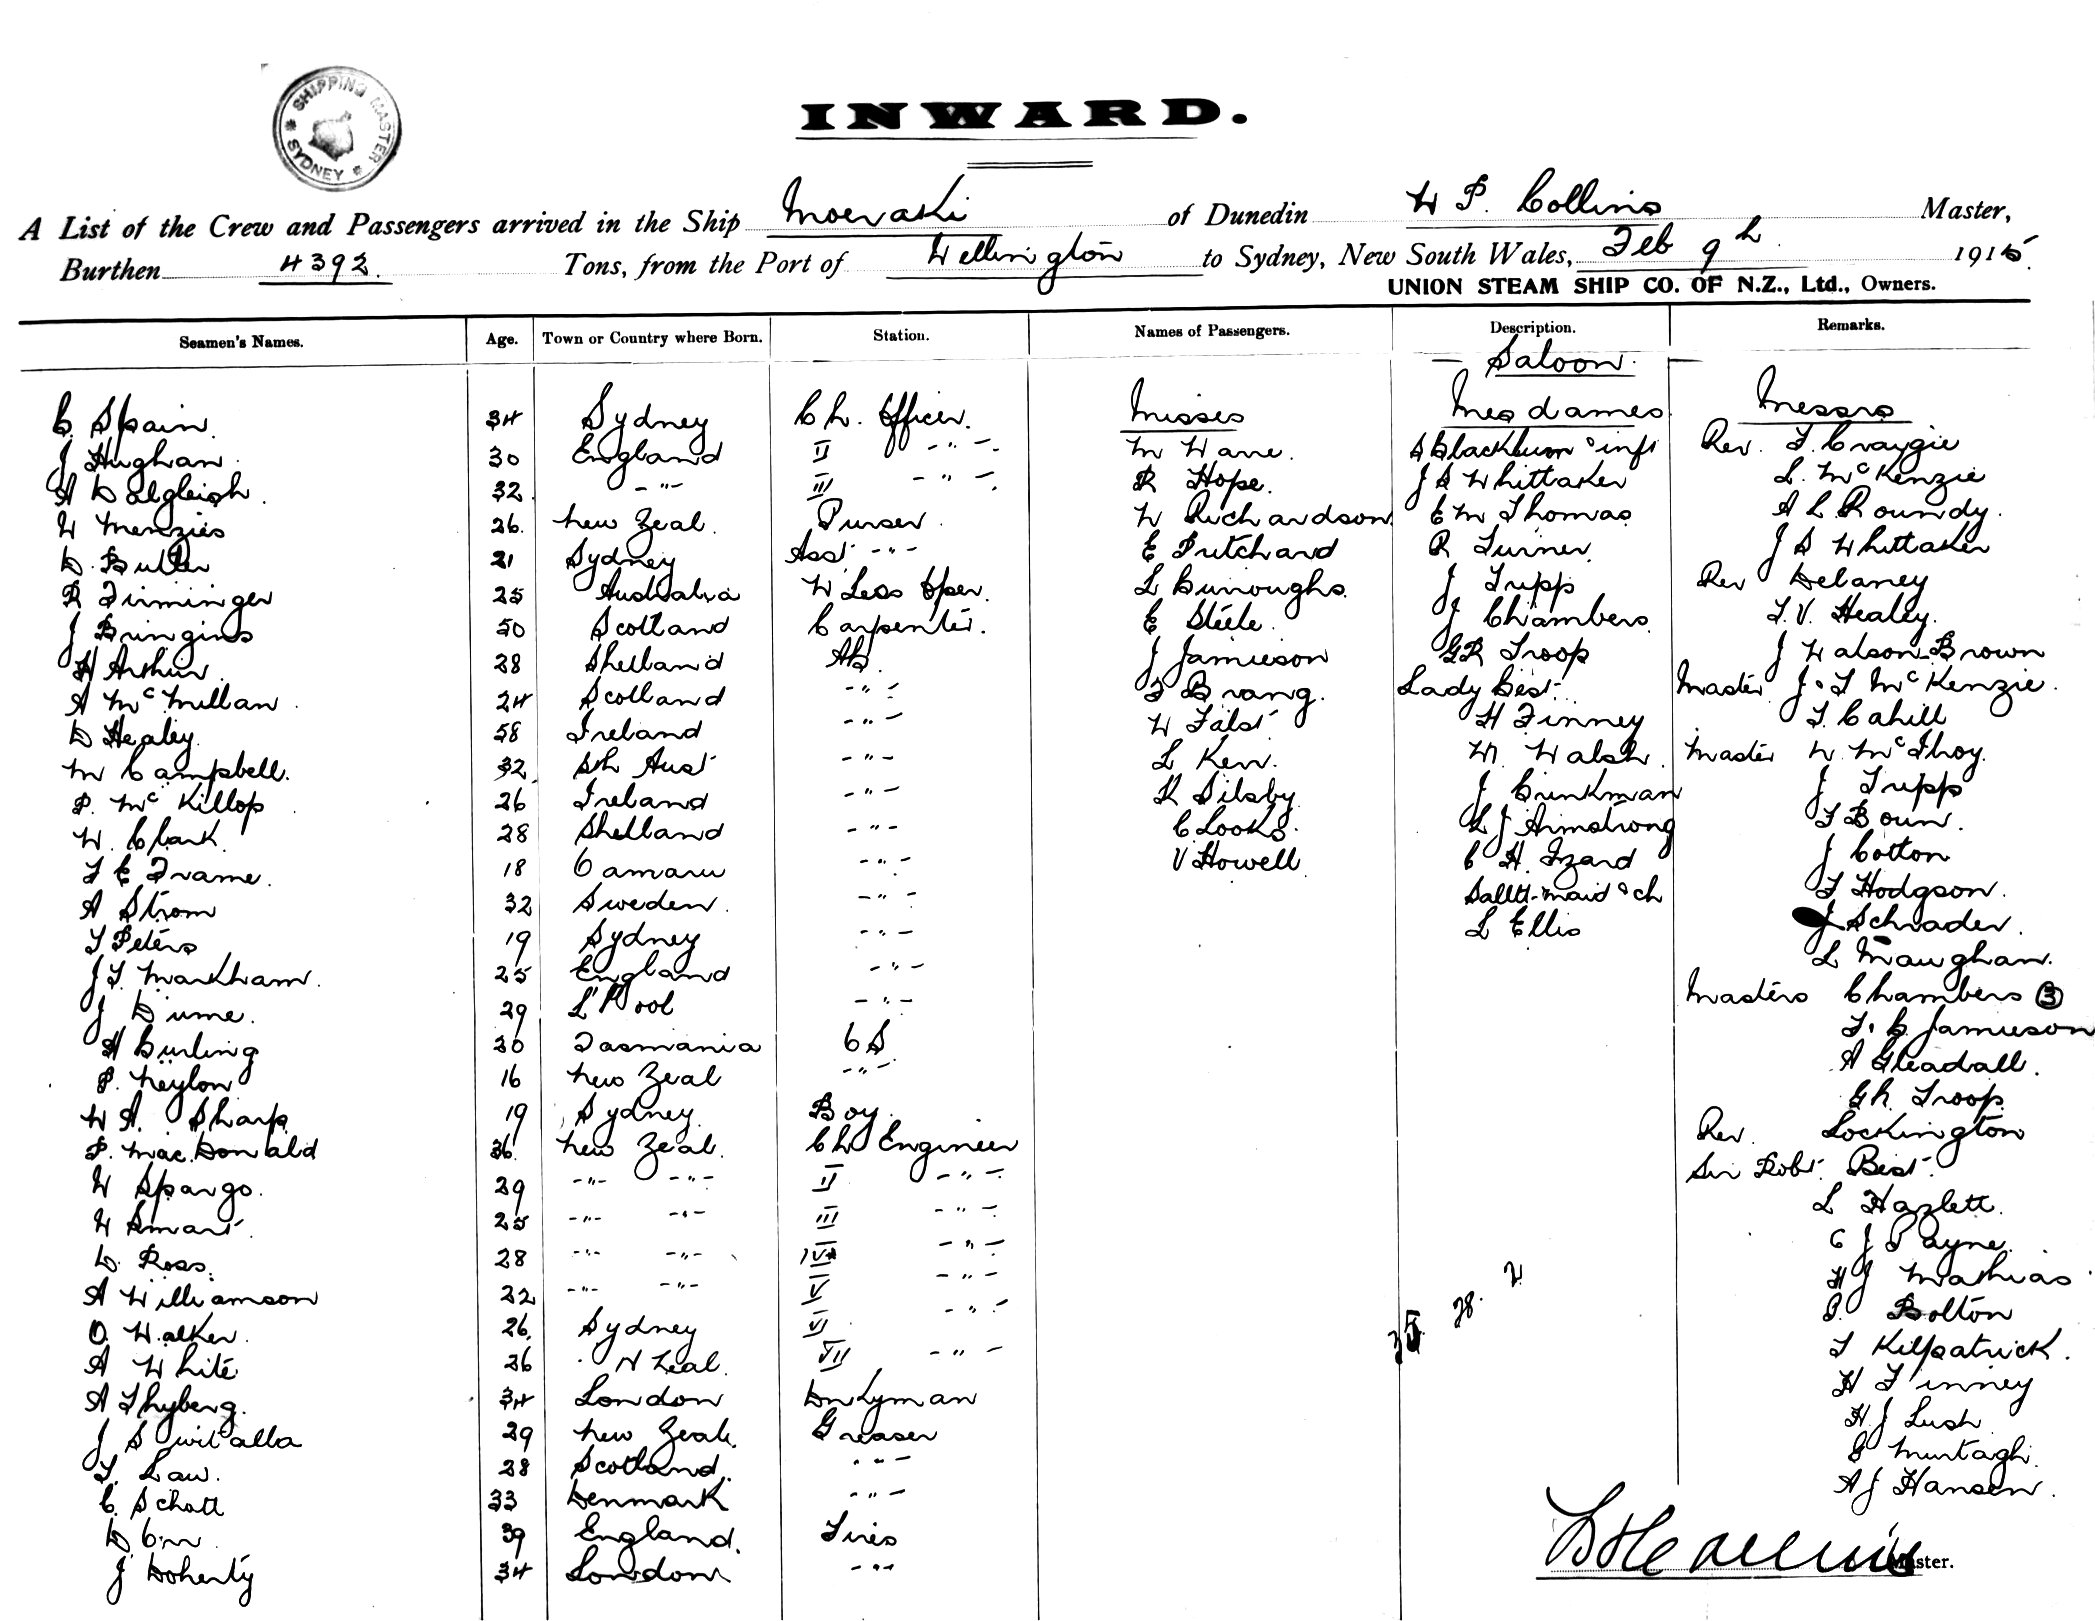 SHIPPING MASTER
* SYDNEY *
INWARD.
A List of the Crew and Passengers arrived in the Ship Moeraki of Dunedin W P. Collins Master,
Burthen 4392. Tons, from the Port of Wellington to Sydney, New South Wales, Feb 9th 1915.
UNION STEAM SHIP CO. OF N.Z., Ltd., Owners.
Seamen's Names. Age. Town or Country where Born. Station. Names of Passengers. Description. Remarks.
Saloon.
C. Spain. 34 Sydney Ch. Officer. Misses Mesdames Messrs
J Hughan. 30 England II -"- M Wane. S Blackburn & inft Rev. T. Craygie
A Dalgleish. 32 -"- III -"- R Hope. J S Whittaker L. McKenzie
W Menzies 26. New Zeal. Purser. W Richardson E M Thomas A L Roundy.
D. Butler 21 Sydney Asst -"- E Pritchard R Turner. J S Whittaker
R Firminger 25 Australia W Less Oper. L Burroughs. J Tripp Rev Delaney
J Bringins 50 Scotland Carpenter. E Steele. J Chambers T. V. Healey.
H Arthur. 28 Shetland AB. J Jamieson GR Troop J Watson-Brown
A McMillan. 24 Scotland -"- F Brang. Lady Best. Master J. T McKenzie.
D Healey. 58 Ireland -"- W H Finney T. Cahill
M Campbell. 32 Sth Aust -"- L Kerr. M. Walsh. Master W. McIlroy.
P. McKillop 26 Ireland -"- K Silsby J Brinkman J Tripp
W. Clark. 28 Shetland -"- C Looks. L J Armstrong T Boun.
T E Frame. 18 Oamaru -"- V Howell C H. Izard J Cotton
A Strom 32 Sweden. -"- maid & ch T Hodgson.
T Peters 19 Sydney -"- L Ellis J Schrader.
J T. Markham. 25 England -"- L Maughan.
J Dume. 29 L'Pool -"- Masters Chambers 3
H Burling 20 Tasmania OS. T. B. Jamieson
P. Neylon 16 New Zeal -"- A Gleadall.
W A. Sharp. 19 Sydney. Boy. Gh. Troop.
P. MacDonald 36. New Zeal. Ch Engineer Rev. Lockington
W Spargo. 29 -"- -"- II -"- Sir Robt. Best.
W Smart. 25 -"- -"- III -"- L Hazlett.
D. Ross. 28 -"- -"- IV -"- C J Payne.
A Williamson 22 -"- -"- V -"- H J Mathias
O. Walker. 26. Sydney VI -"- P. Bolton
A White. 26 N Zeal. VII -"- T Kilpatrick.
A Thyberg. 34 London Dnkyman H Finney
J Switalla 29 New Zeal. Greaser H. J Lush
T. Law. 28 Scotland. -"- G Murtagh.
C. Schott 33 Denmark -"- A J Hansen.
D Orr. 39 England. Fires
J Doherty 34 London -"-
35 28. 2
Master.